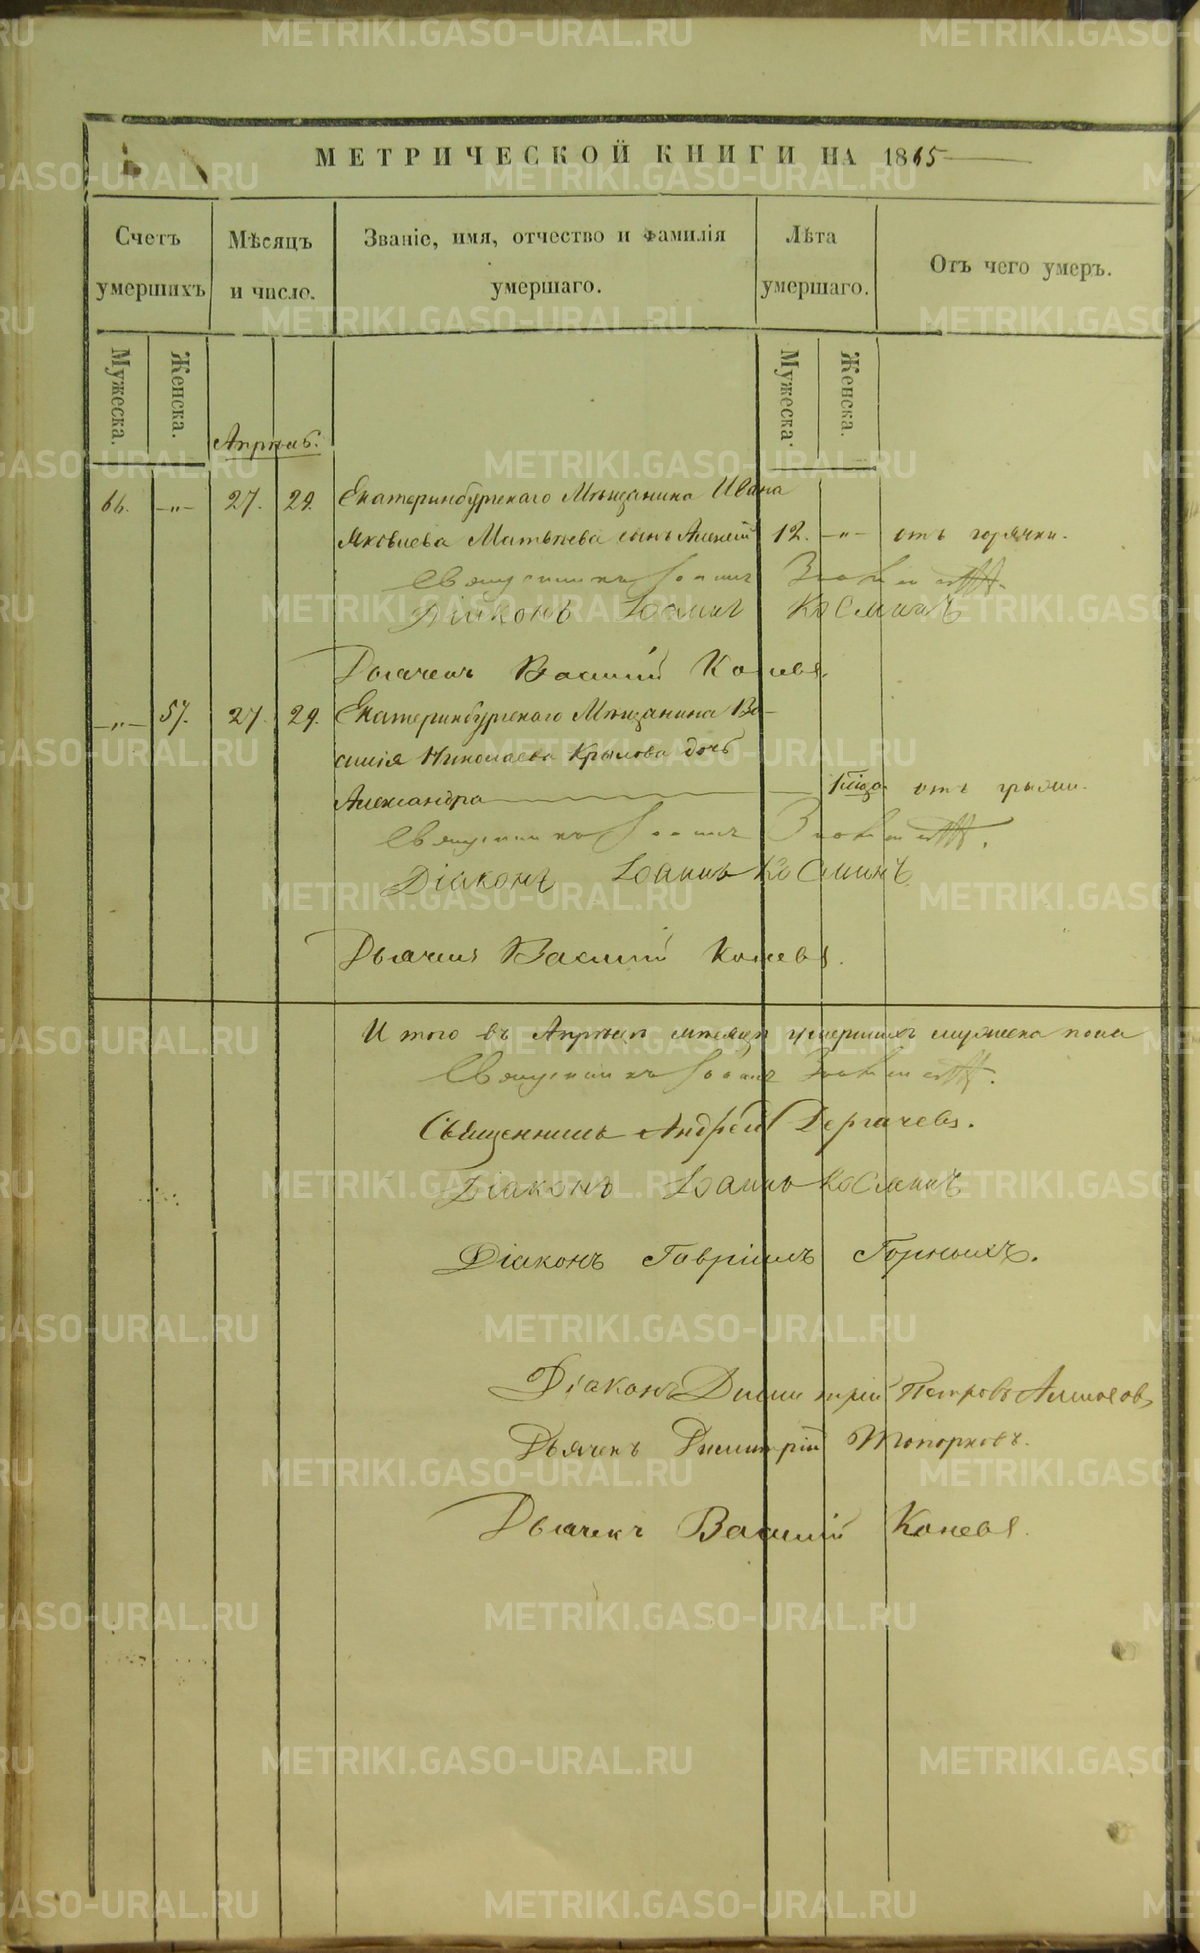 МЕТРИЧЕСКОЙ КНИГИ НА 1865
Счетъ умершихъ
Мѣсяцъ и число.
Званіе, имя, отчество и фамилія умершаго.
Лѣта умершаго.
Отъ чего умеръ.
Мужеска.
Женска.
Мужеска.
Женска.
Апрѣль.
66. -„- 27. 29. Екатеринбургскаго Мѣщанина Ивана
Яковлева Матвѣева сынъ Алексѣй 12. -„- отъ горячки.
Священникъ Іоаннъ
Діаконъ Іоаннъ Косминъ
Дьячекъ Василій Коневъ.
-„- 57. 27. 29. Екатеринбургскаго Мѣщанина Ва-
силія Николаева Крылова дочь
Александра 1 года отъ грыжи.
Священникъ Іоаннъ
Діаконъ Іоаннъ Косминъ
Дьячекъ Василій Коневъ.
Итого въ Апрѣлѣ мѣсяцѣ умершихъ мужеска пола
Священникъ Іоаннъ
Священникъ Андрей Дергачевъ.
Діаконъ Іоаннъ Косминъ
Діаконъ Гавріилъ Горныхъ.
Діаконъ Димитрій Петровъ
Дьячекъ Димитрій Топорковъ.
Дьячекъ Василій Коневъ.
METRIKI.GASO-URAL.RU